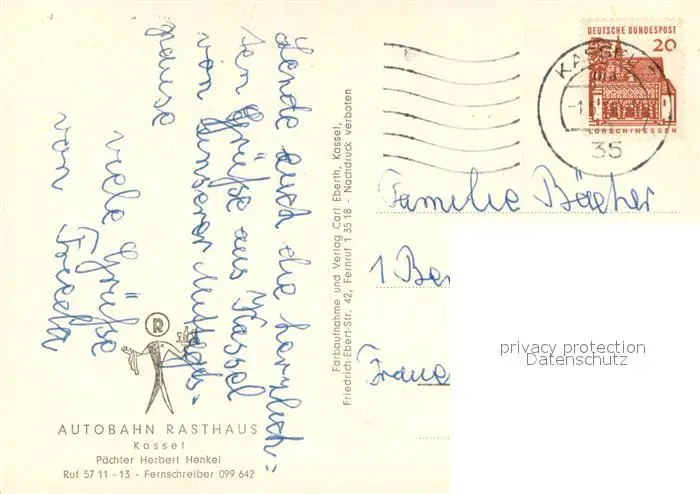 Sende euch die herzlich=
sten Grüße aus Kassel
von unserer Mittags=
pause
viele Grüße
von
AUTOBAHN RASTHAUS
Kassel
Pächter Herbert Henkel
Ruf 57 11 - 13 - Fernschreiber 099 642
R
Farbaufnahme und Verlag Carl Eberth, Kassel,
Friedrich-Ebert-Str. 42, Fernruf 1 35 18 - Nachdruck verboten
DEUTSCHE BUNDESPOST
20
LORSCH/HESSEN
KASSEL
35
Familie Bächer
1 Ber
privacy protection
Datenschutz